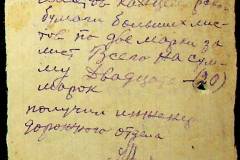 бумаги больших лис-
тов по две марки за
лист Всего на сум-
му Двадцать (20)
марок
получил инженер
дорожного отдела